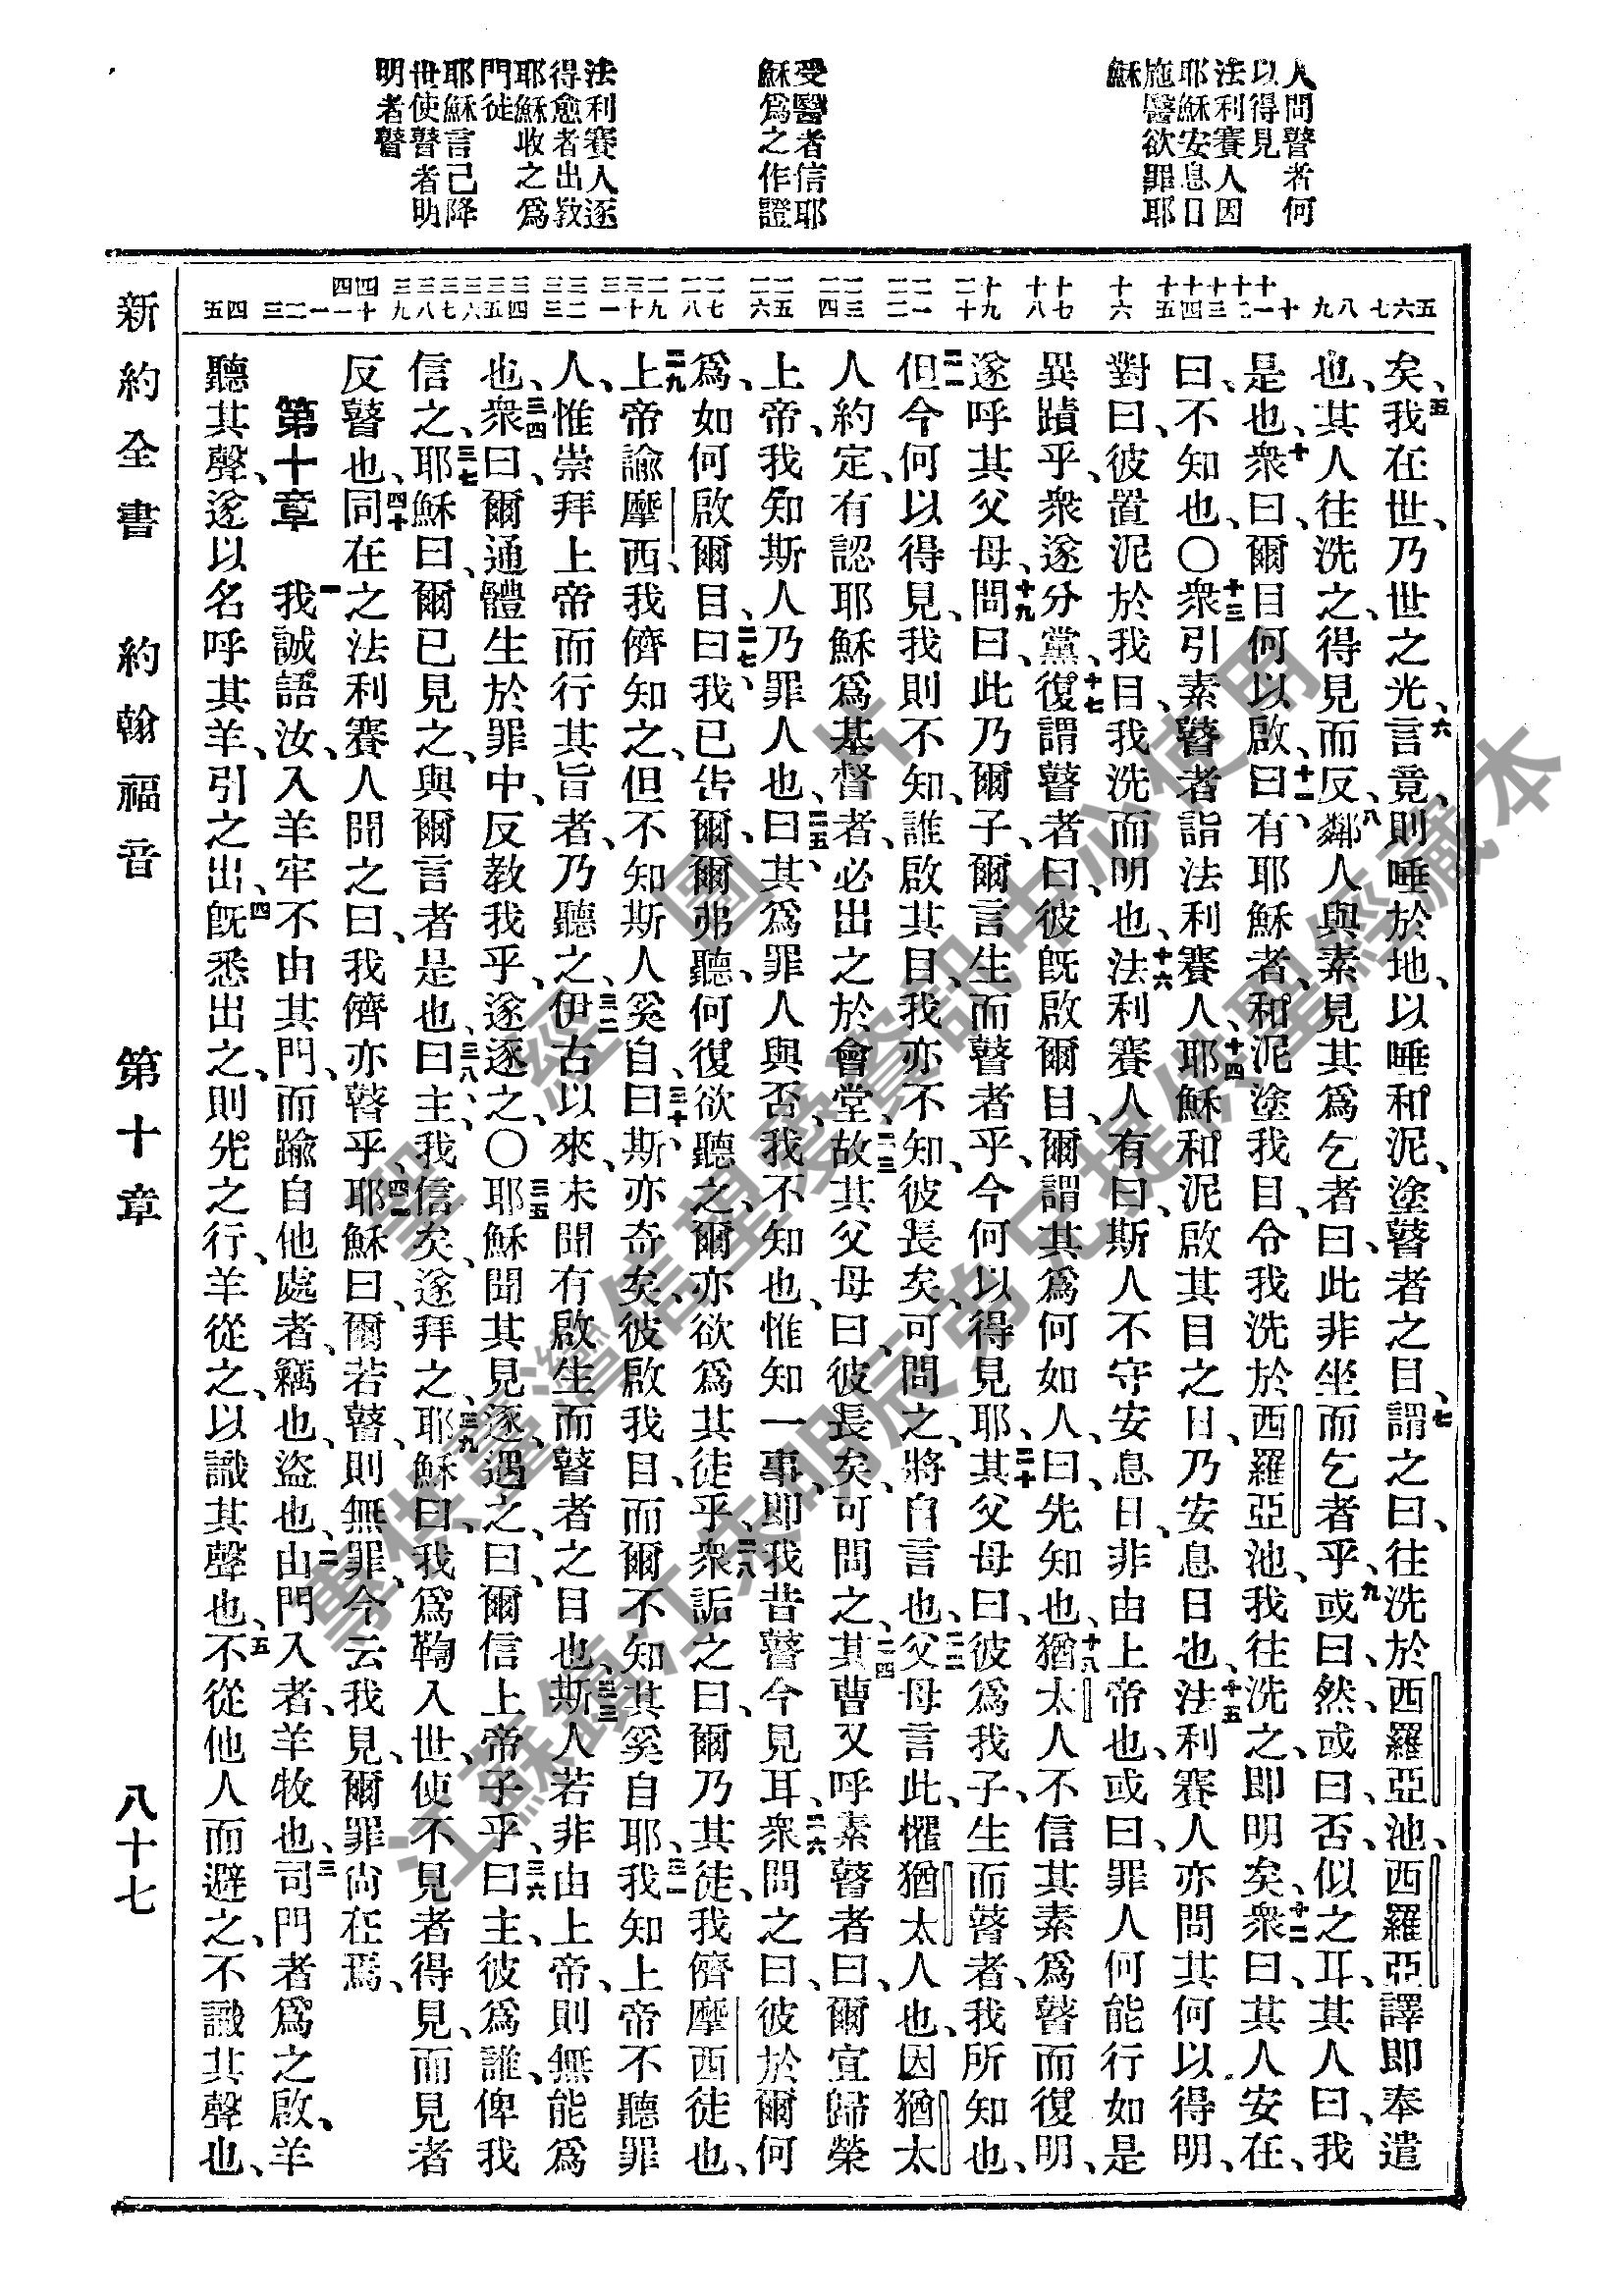 人問瞽者何
以得見
法利賽人因
耶穌安息日
施醫欲罪耶
穌
受醫者信耶
穌爲之作證
法利賽人逐
得愈者出敎
耶穌收之爲
門徒
耶穌言己降
世使瞽者明
明者瞽
五 六 七 八 九 十 十一 十二 十三 十四 十五 十六 十七 十八 十九 二十 二一 二二 二三 二四 二五 二六 二七 二八 二九 三十 三一 三二 三三 三四 三五 三六 三七 三八 三九 四十 四一 一 二 三 四 五
矣、五我在世、乃世之光、六言竟、則唾於地、以唾和泥、塗瞽者之目、七謂之曰、往洗於西羅亞池、西羅亞譯卽奉遣
也、其人往洗之、得見而反、八鄰人與素見其爲乞者曰、此非坐而乞者乎、九或曰、然、或曰、否、似之耳、其人曰、我
是也、十衆曰、爾目何以啟、十一曰、有耶穌者、和泥塗我目、令我洗於西羅亞池、我往洗之、卽明矣、十二衆曰、其人安在、
曰、不知也、〇十三衆引素瞽者詣法利賽人、十四耶穌和泥啟其目之日、乃安息日也、十五法利賽人亦問其何以得明、
對曰、彼置泥於我目、我洗而明也、十六法利賽人有曰、斯人不守安息日、非由上帝也、或曰、罪人何能行如是
異蹟乎、衆遂分黨、十七復謂瞽者曰、彼旣啟爾目、爾謂其爲何如人、曰、先知也、十八猶太人不信其素爲瞽而復明、
遂呼其父母、十九問曰、此乃爾子、爾言生而瞽者乎、今何以得見耶、二十其父母曰、彼爲我子、生而瞽者、我所知也、
二一但今何以得見、我則不知、誰啟其目、我亦不知、彼長矣、可問之、將自言也、二二父母言此、懼猶太人也、因猶太
人約定、有認耶穌爲基督者、必出之於會堂、二三故其父母曰、彼長矣、可問之、二四其曹又呼素瞽者曰、爾宜歸榮
上帝、我知斯人乃罪人也、二五曰、其爲罪人與否、我不知也、惟知一事、卽我昔瞽今見耳、二六衆問之曰、彼於爾何
爲、如何啟爾目、二七曰、我已吿爾、爾弗聽、何復欲聽之、爾亦欲爲其徒乎、二八衆詬之曰、爾乃其徒、我儕摩西徒也、
二九上帝諭摩西、我儕知之、但不知斯人奚自、三十曰、斯亦奇矣、彼啟我目、而爾不知其奚自耶、三一我知上帝不聽罪
人、惟崇拜上帝而行其旨者、乃聽之、三二伊古以來、未聞有啟生而瞽者之目也、三三斯人若非由上帝、則無能爲
也、三四衆曰、爾通體生於罪中、反敎我乎、遂逐之、〇三五耶穌聞其見逐、遇之、曰、爾信上帝子乎、三六曰、主、彼爲誰、俾我
信之、三七耶穌曰、爾已見之、與爾言者是也、三八曰、主、我信矣、遂拜之、三九耶穌曰、我爲鞫入世、使不見者得見、而見者
反瞽也、四十同在之法利賽人聞之曰、我儕亦瞽乎、四一耶穌曰、爾若瞽、則無罪、今云我見、爾罪尙在焉、
第十章 一我誠語汝、入羊牢不由其門、而踰自他處者、竊也、盜也、二由門入者、羊牧也、三司門者爲之啟、羊
聽其聲、遂以名呼其羊、引之出、四旣悉出之、則先之行、羊從之、以識其聲也、五不從他人而避之、不識其聲也、
新約全書 約翰福音 第十章 八十七
聖經圖片
專供臺灣信望愛資訊中心使用
江蘇鎮江朱明辰弟兄提供聖經藏本